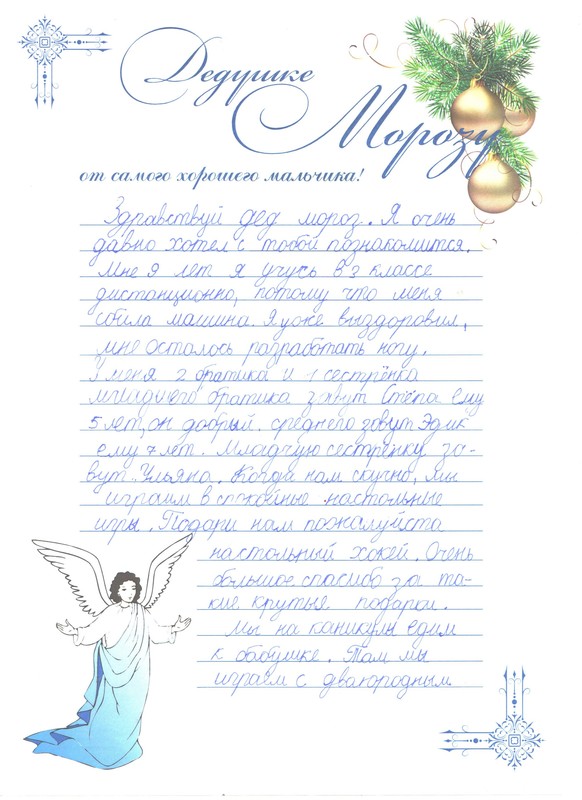 Дедушке
Морозу
от самого хорошего мальчика!
Здравствуй дед мороз. Я очень
давно хотел с тобой познакомится.
Мне 9 лет я учусь в 3 классе
дистанционно, потому что меня
сбила машина. Я уже выздоровил,
мне осталось разработать ногу.
У меня 2 братика и 1 сестрёнка
младшего братика зовут Стёпа ему
5 лет, он добрый. среднего зовут Эдик
ему 7 лет. Младшую сестрёнку за-
вут Ульяна. Когда нам скучно, мы
играем в спокойные настольные
игры. Подари нам пожалуйста
настольный хокей. Очень
большое спасибо за та-
кие крутые подарки.
Мы на каникулы едим
к бабушке. Там мы
играем с дваюродным